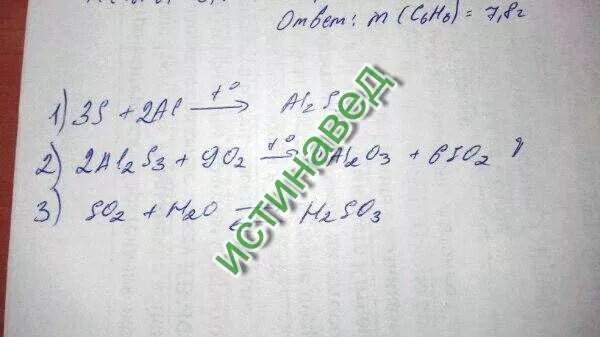 Ответ: m (C6H6) = 7,8г
1) 3S + 2Al t° → Al2S
2) 2Al2S3 + 9O2 t° → Al2O3 + 6SO2
3) SO2 + H2O ⇄ H2SO3
ИСТИНАВЕД